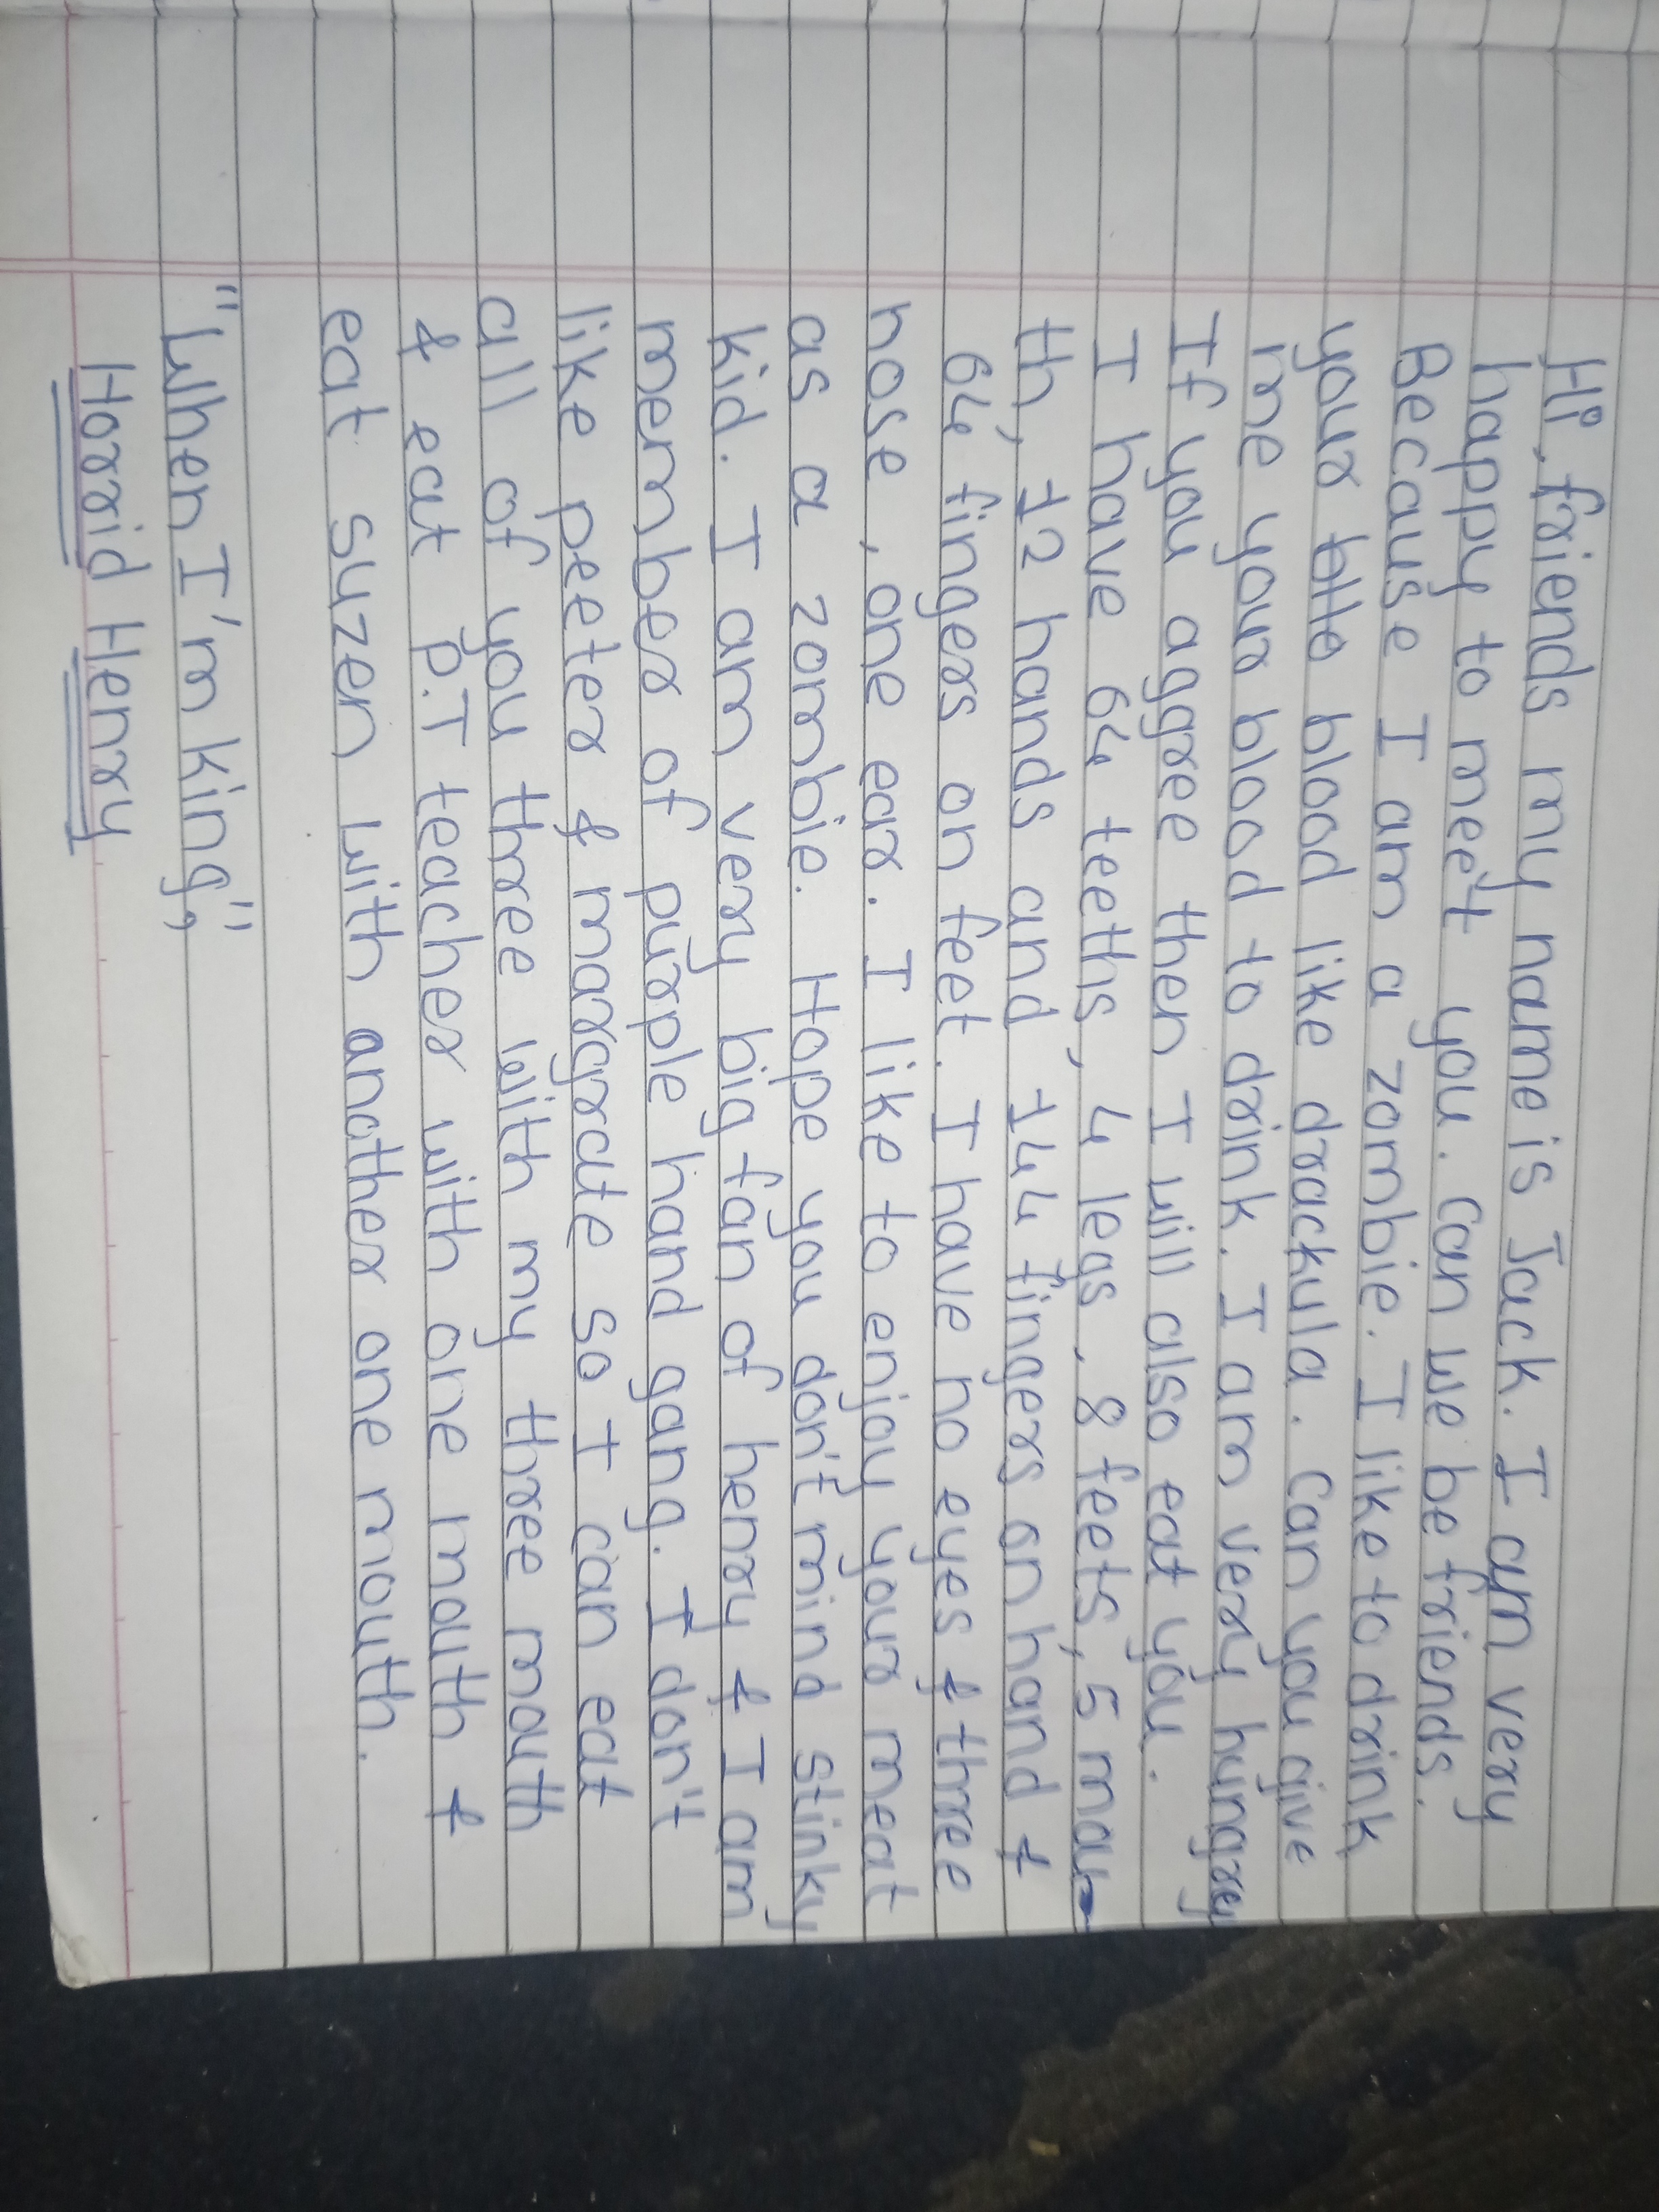 Hi, friends my name is Jack. I am very
happy to meet you. Can we be friends.
Because I am a zombie. I like to drink
your blood like drackula. Can you give
me your blood to drink. I am very hungrey
If you aggree then I will also eat you.
I have 64 teeths, 4 legs, 8 feets, 5 mou-
th, 12 hands and 144 fingers on hand &
64 fingers on feet. I have no eyes & three
nose, one ear. I like to enjoy your meat
as a zombie. Hope you don't mind stinky
kid. I am very big fan of henry & I am
member of purple hand gang. I don't
like peeter & margrate so I can eat
all of you three with my three mouth
& eat p.T teacher with one mouth &
eat suzen with another one mouth.
"When I'm king",
Horrid Henry